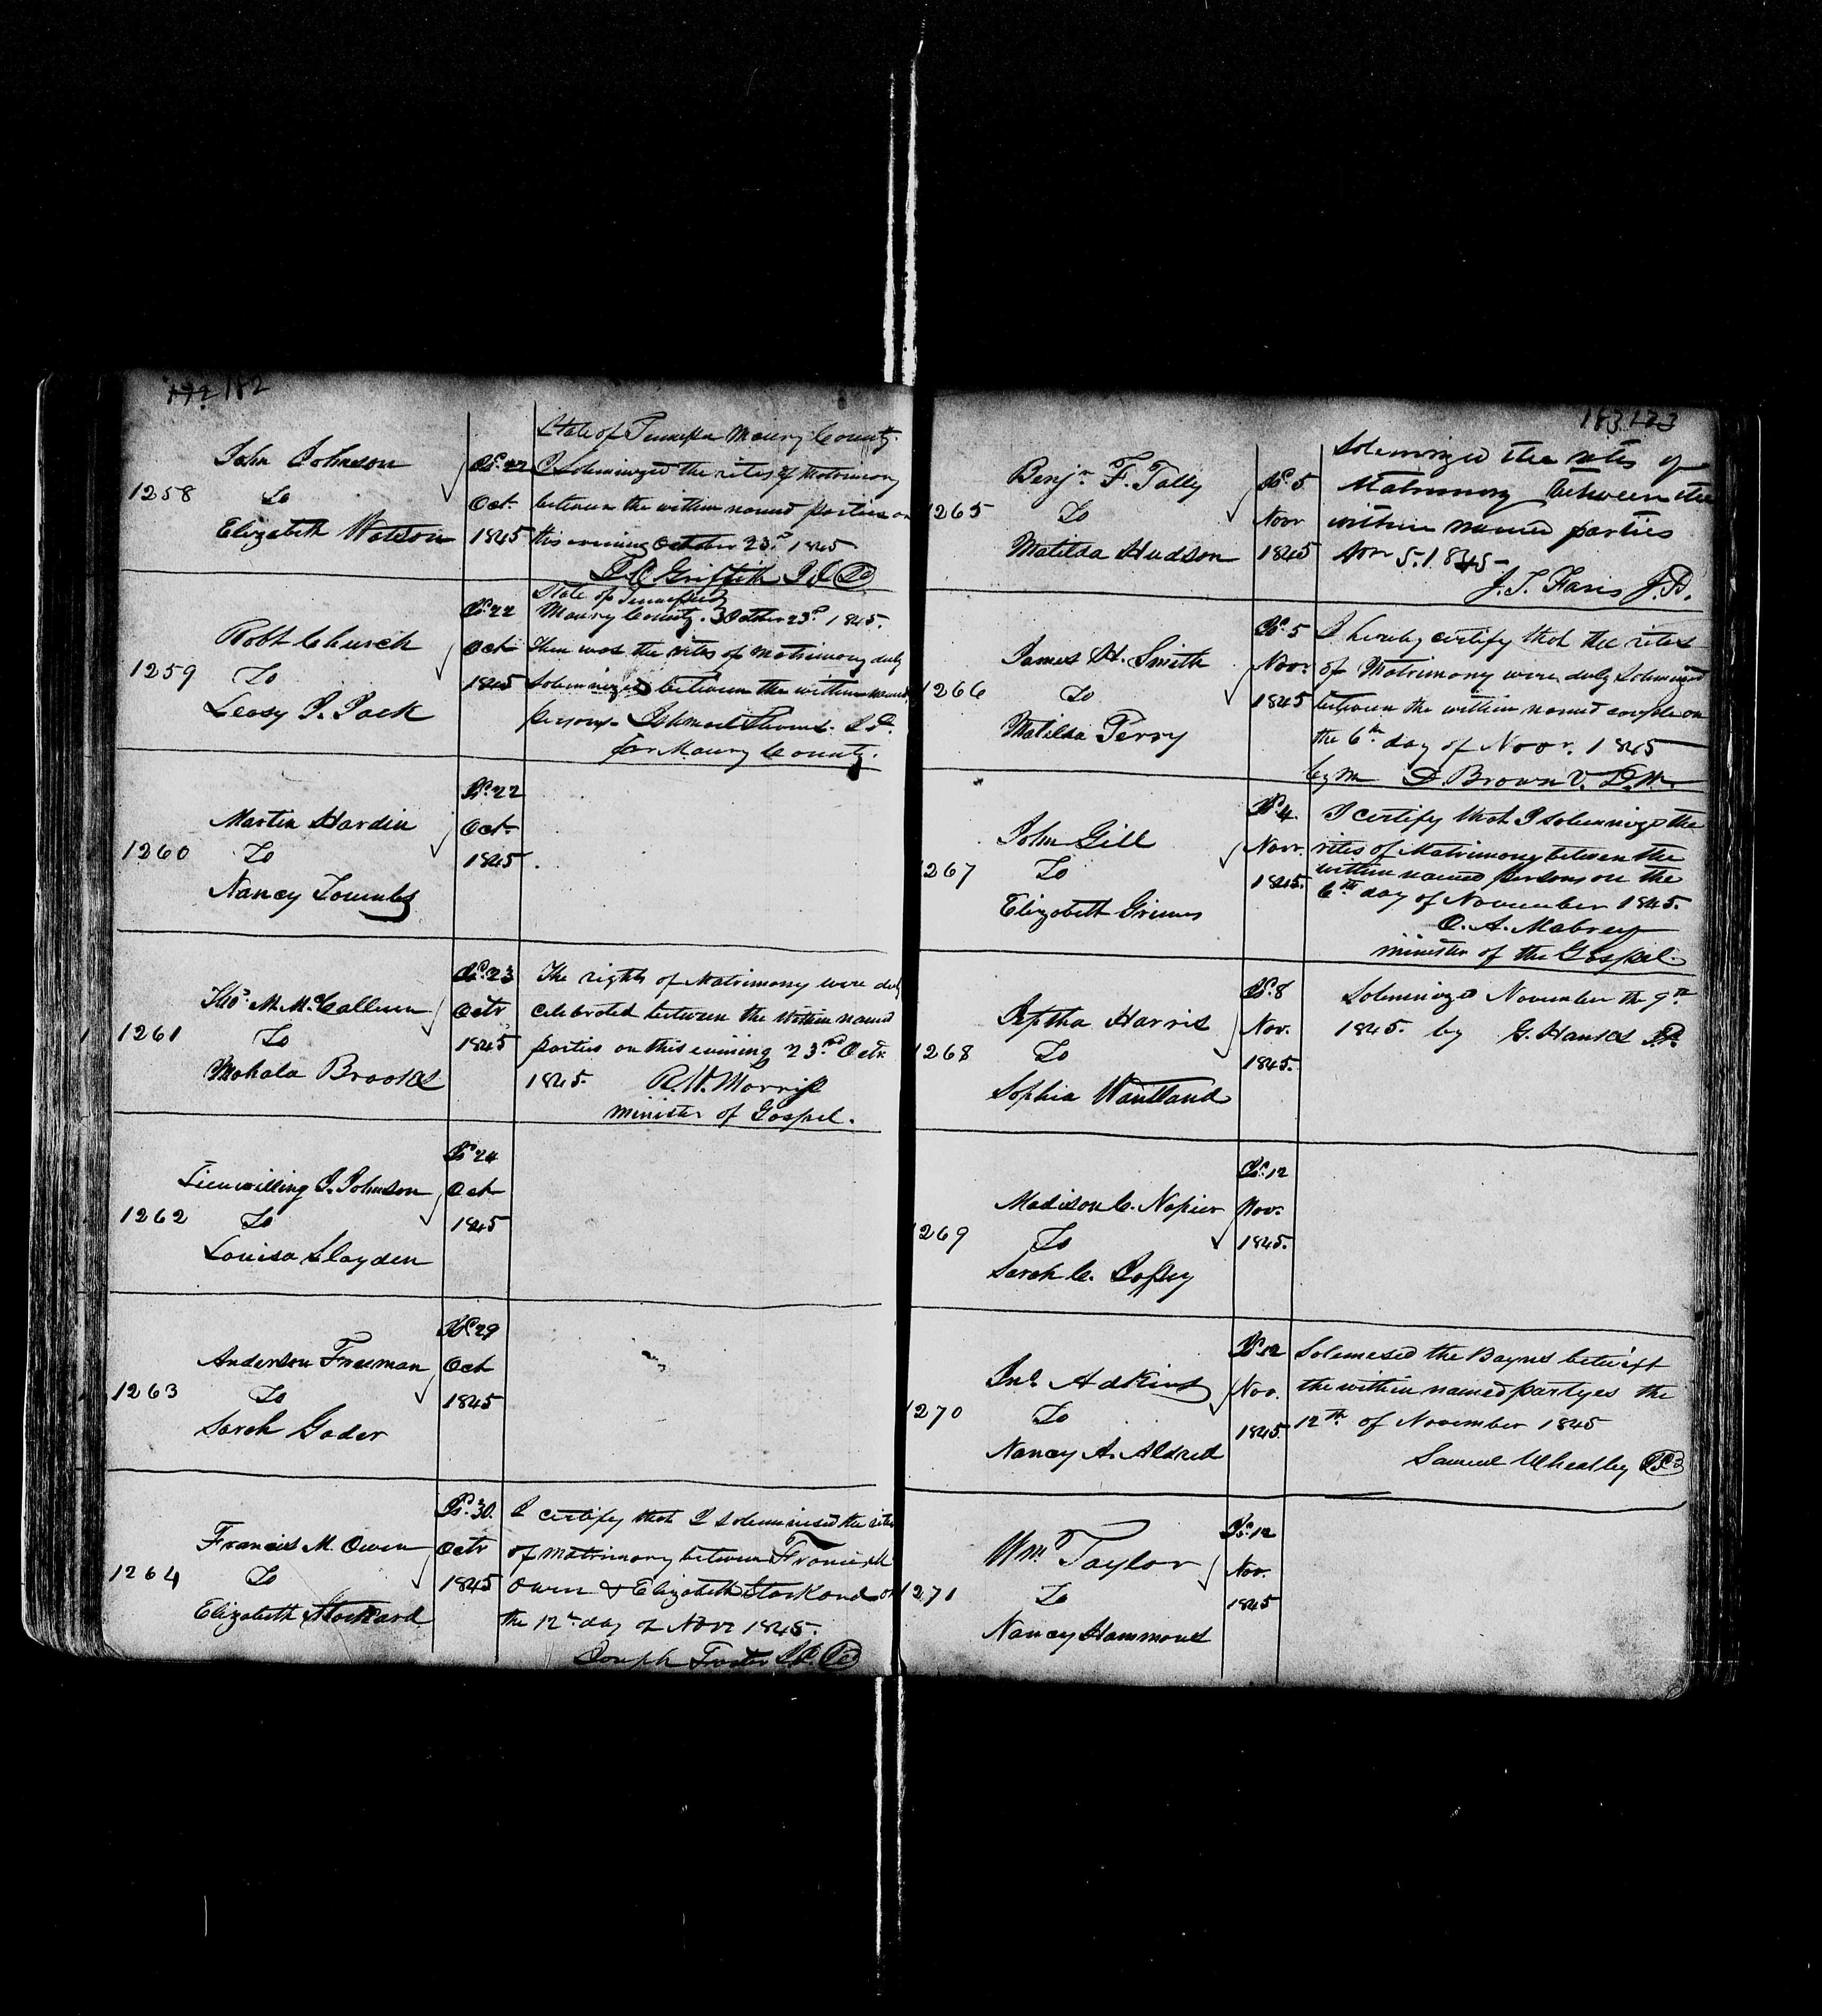 172 182
State of Tennessee Maury County.
1258
John Johnson
To
Elizabeth Watson
Is.d 22
Oct.
1845
I Solemnized the rites of Matrimony
between the within named parties on
this evening October 23.d 1845
Griffith
1259
Robt Church
To
Leasy J. Jack
Is.d 22
Oct
1845
State of Tennessee
Maury County. } October 23.d 1845.
Then was the rites of Matrimony duly
Solemnized between the within named
persons.
for Maury County.
1260
Martin Hardin
To
Nancy Toumbs
Is.d 22
Oct.
1845.
1261
Tho.s M. McCallum
To
Mahala Brooks
Is.d 23
Octr
1845
The rights of Matrimony were duly
celebrated between the within named
parties on this evening 23.rd Octr.
1845. R. W. Morris
minister of Gospel.
1262
J. Johnson
To
Louisa Slayden
Is.d 24
Oct
1845
1263
Anderson Freeman
To
Sarah Gader
Is.d 29
Oct
1845
1264
Francis M. Owen
To
Elizabeth Stockard
Is.d 30.
Octr
1845
I certify that I solemnised the rites
of matrimony between Francis M
Owen & Elizabeth Stockard on
the 12th day of Novr 1845.
Joseph Foster J.P.
183 173
1265
Benj.n F. Tally
To
Matilda Hudson
Is.d 5
Novr
1845
Solemnized the rites of
Matrimony between the
within named parties
Novr 5. 1845
J. T. Faris J.P.
1266
James H. Smith
To
Matilda Perry
Is.d 5
Novr.
1845
I hereby certify that the rites
of Matrimony were duly Solemnized
between the within named couple on
the 6th day of Novr. 1845
by me D Brown V. D. M.
1267
John Gill
To
Elizabeth Grimes
Is.d 4.
Novr.
1845.
I certify that I solemnized the
rites of Matrimony between the
within named persons on the
6th day of November 1845.
O. A. Mabrey
minister of the Gospel.
1268
Jeptha Harris
To
Sophia Wantland
Is.d 8
Nov.
1845.
Solemnized November the 9th
1845. by G. Hanks J.P.
1269
Madison C. Napier
To
Sarah C.
Is.d 12
Nov.
1845.
1270
Jno. Adkins
To
Nancy A. Aldred
Is.d 12
Nov.
1845.
Solemised the Bayns betwixt
the within named partyes the
12th of November 1845
Samuel Wheatley
1271
Wm. Taylor
To
Nancy Hammons
Is.d 12
Nov.
1845